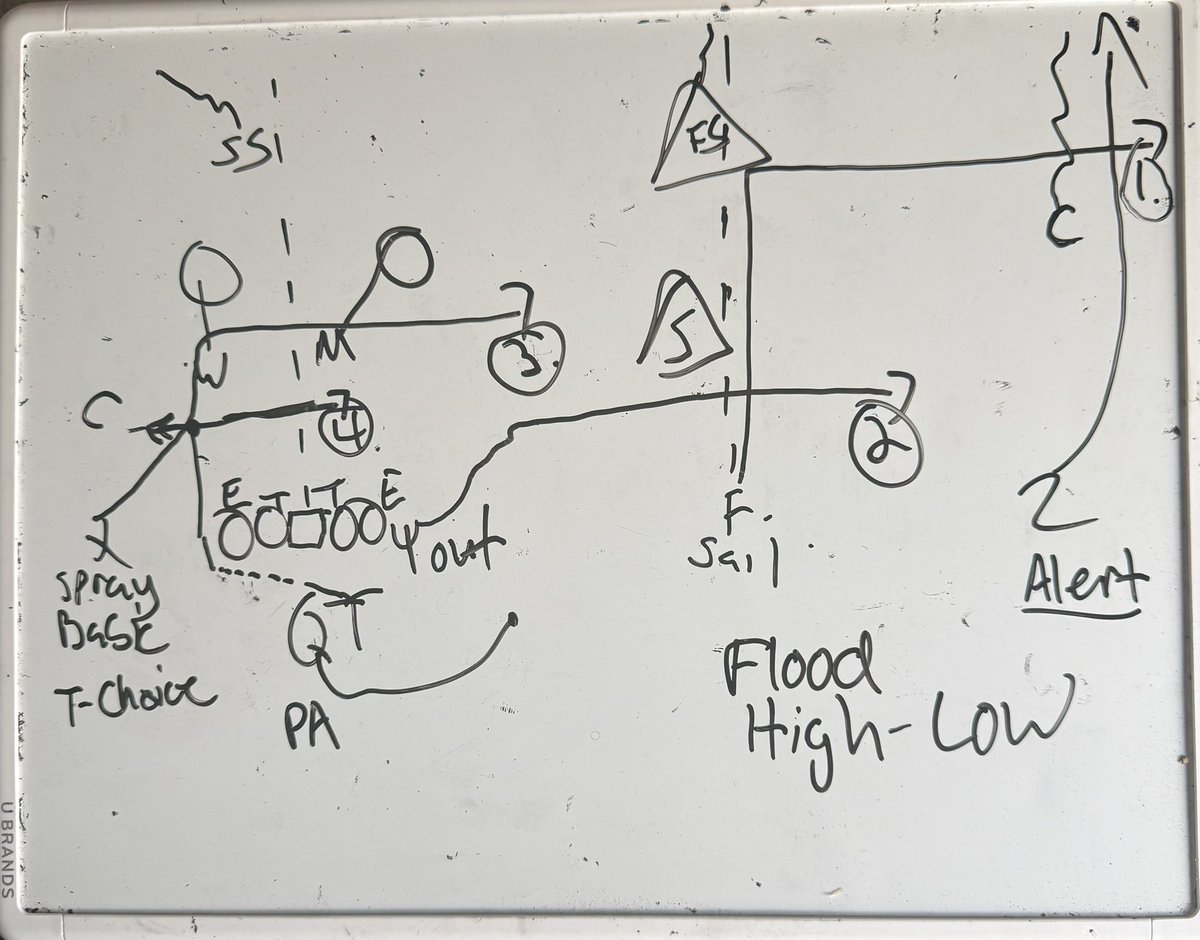 SS
FS
1.
C
S
W
M
3.
C
4.
2
E T T E
Y out
F.
Sail
Z
Alert
X
Spray
Basic
T-Choice
Q T
PA
Flood
High-Low
U BRANDS